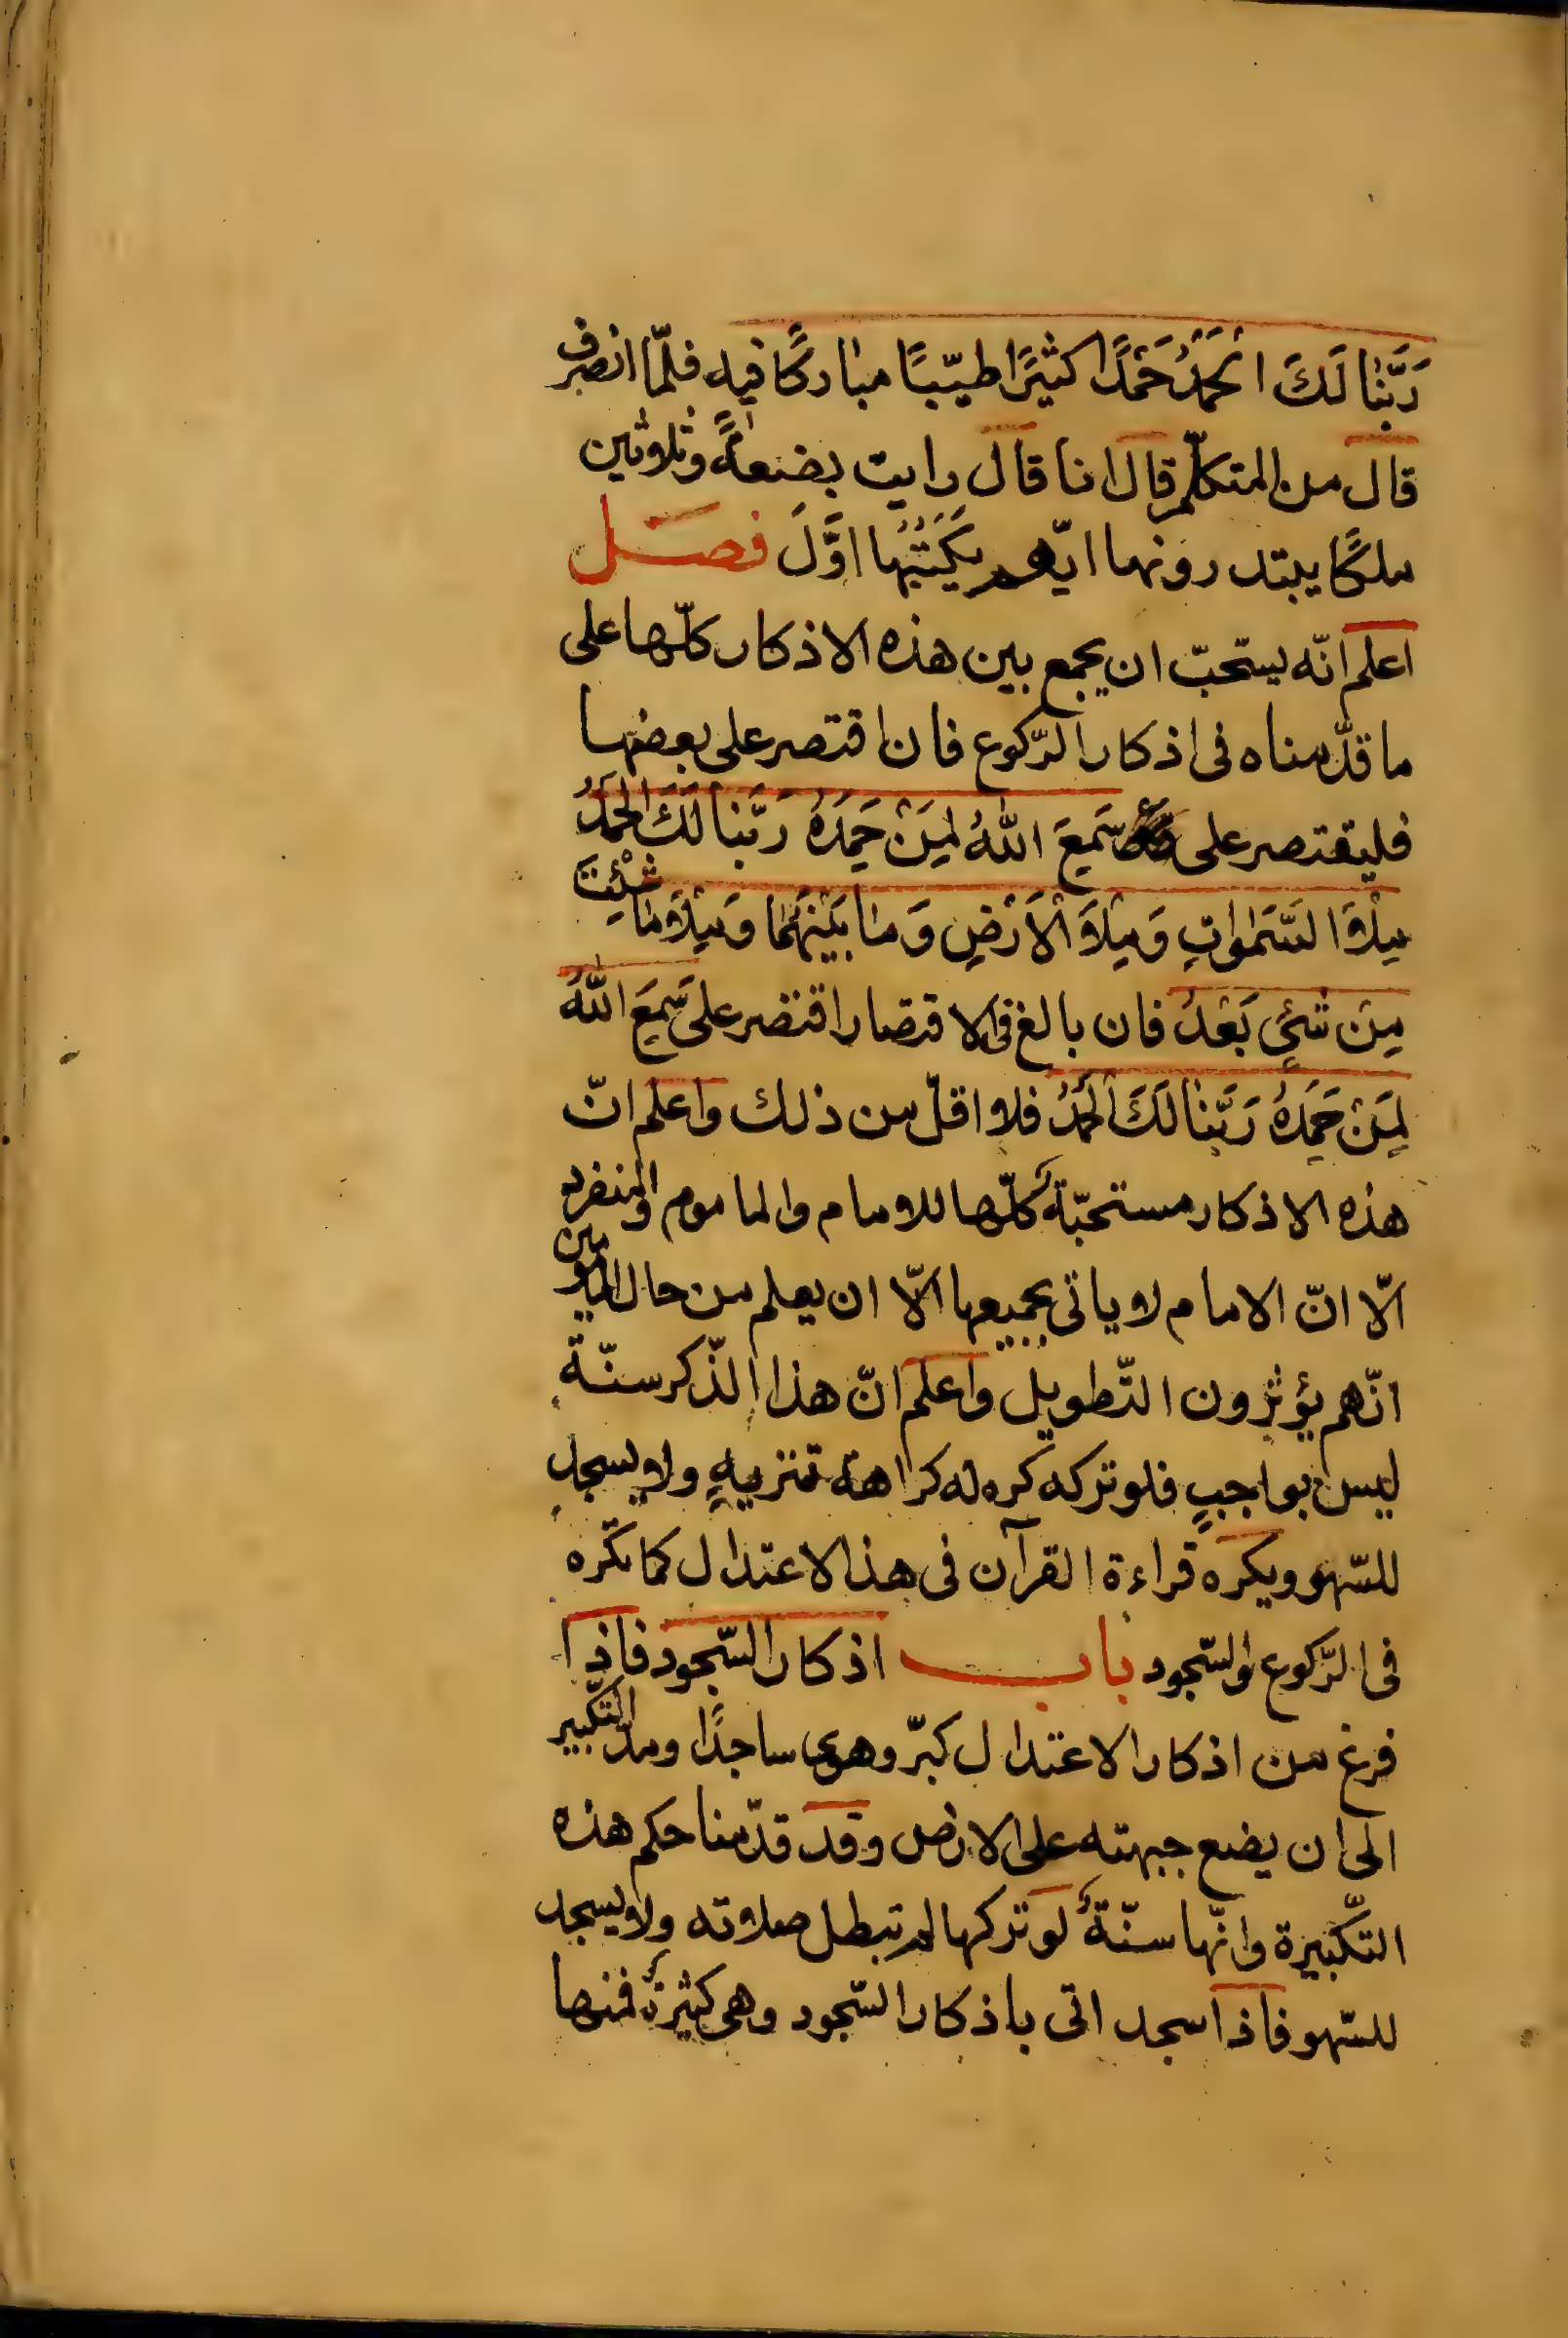 رَبَّنٰا لَكَ الْحَمْدُ حَمْدًا كَثيرًا طيّبًا مبٰاركًا فيه فلمّا انصرف
قال من المتكلّم قال انا قال رايت بضعةً وثلاثين
ملكًا يبتدرونها ايّهم يَكْتُبُها اوَّلَ فصل
اعلم انّه يستحبّ ان يجمع بين هذه الاذكار كلّها على
ما قدّمناه فى اذكار الرّكوع فان اقتصر على بعضها
فليقتصر على سَمِعَ اللّٰهُ لِمَنْ حَمِدَهُ رَبَّنٰا لَكَ الْحَمْدُ
مِلْأَ السَّمٰوٰاتِ وَمِلْأَ الْأَرْضِ وَمٰا بَيْنَهُمٰا وَمِلْأَ مٰا شِئْتَ
مِنْ شَئٍ بَعْدُ فان بالغ فى الاقتصار اقتصر على سَمِعَ اللّٰهُ
لِمَنْ حَمِدَهُ رَبَّنٰا لَكَ الْحَمْدُ فلا اقلّ من ذلك واعلم انّ
هذه الاذكار مستحبّةٌ كلّها للامام والماموم والمنفرد
الّا انّ الامام لا ياتى بجميعها الّا ان يعلم من حال المامومين
انّهم يؤثرون التّطويل واعلم انّ هذا الذّكر سنّة
ليس بواجبٍ فلو تركه كره له كراهة تنزيهٍ ولا يسجد
للسّهو ويكره قراءة القرآن فى هذا الاعتدال كما تكره
فى الرّكوع والسّجود باب اذكار السّجود فاذا
فرغ من اذكار الاعتدال كبّر وهوى ساجدًا ومدّ التّكبير
الى ان يضع جبهته على الارض وقد قدّمنا حكم هذه
التّكبيرة وانّها سنّةٌ لو تركها لم تبطل صلاته ولا يسجد
للسّهو فاذا سجد اتى باذكار السّجود وهى كثيرةٌ فمنها